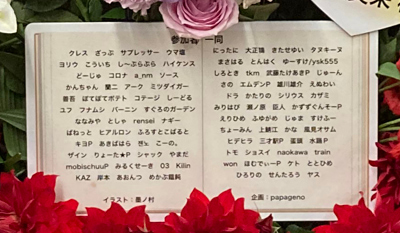 参加者一同
クレス ざっぷ サプレッサー ウマ塩
ヨリウ こういち しーぷらぷら ハイケンス
どーじゅ コロナ a_nm ソース
かんちゃん 蘭二 アーク ミツダイガー
善吾 ぽてぽてポテト コテージ しーどる
ユフ ナフムシ バーニン すぐろるのガーデン
ななみや としゃ rensei ナギー
ぱねっと ヒアルロン ふろすとこばると
キヨP あきばはら ぎぇ こーの。
ザイン りょーた★P シャック やまだ
mobischuuP みるくせーき 03 Kilin
KAZ 岸本 あおんつ めかぶ臨興
イラスト：墨ノ村
にったに 大正鴇 きたせゆい タヌキーヌ
まさはる とんはく ゆーすけ/ysk555
しろとき tkm 武藤たけあきP じゅーん
さの エムデンP 雄川雄介 えぬわい
ドラ かたりの シリウス カザミ
みりはぴ 瀬ノ原 巨人 かずすぐんそーP
えりひめ ふゆがめ じゃま すけふー
ちょーみん 上額江 かな 風見オサム
ヒデヒラ 三才駅P 蛋頭 水護P
トモ ショスイ naokawa train
won はむでぃーP ケト ととひめ
ひろりの せんたろう ヤス
企画：papageno